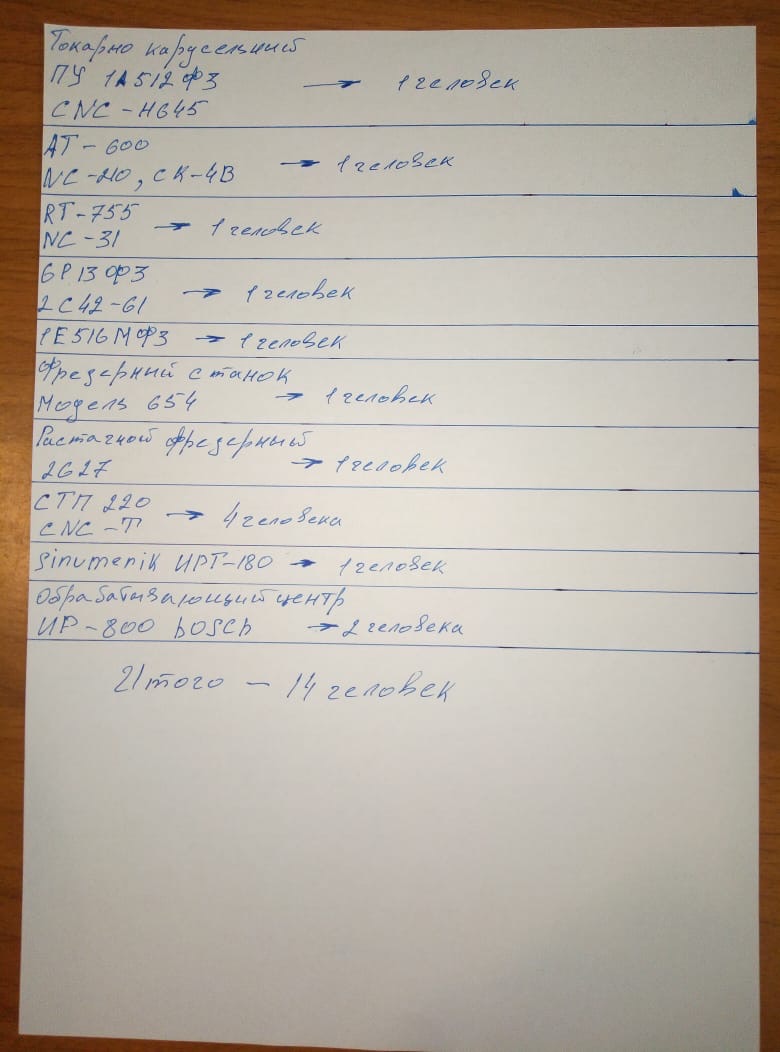 Токарно карусельный
ПУ 1А512ФЗ → 1 человек
CNC - H645
АТ - 600
NC - 210, СК - 4В → 1 человек
RT - 755
NC - 31 → 1 человек
6Р13ФЗ
2С42-61 → 1 человек
1Е516МФЗ → 1 человек
Фрезерный станок
Модель 654 → 1 человек
Расточной фрезерный
2627 → 1 человек
СТП 220
CNC - T → 4 человека
Sinumerik ИРТ-180 → 1 человек
Обрабатывающий центр
ИР - 800 bosch → 2 человека
Итого — 14 человек